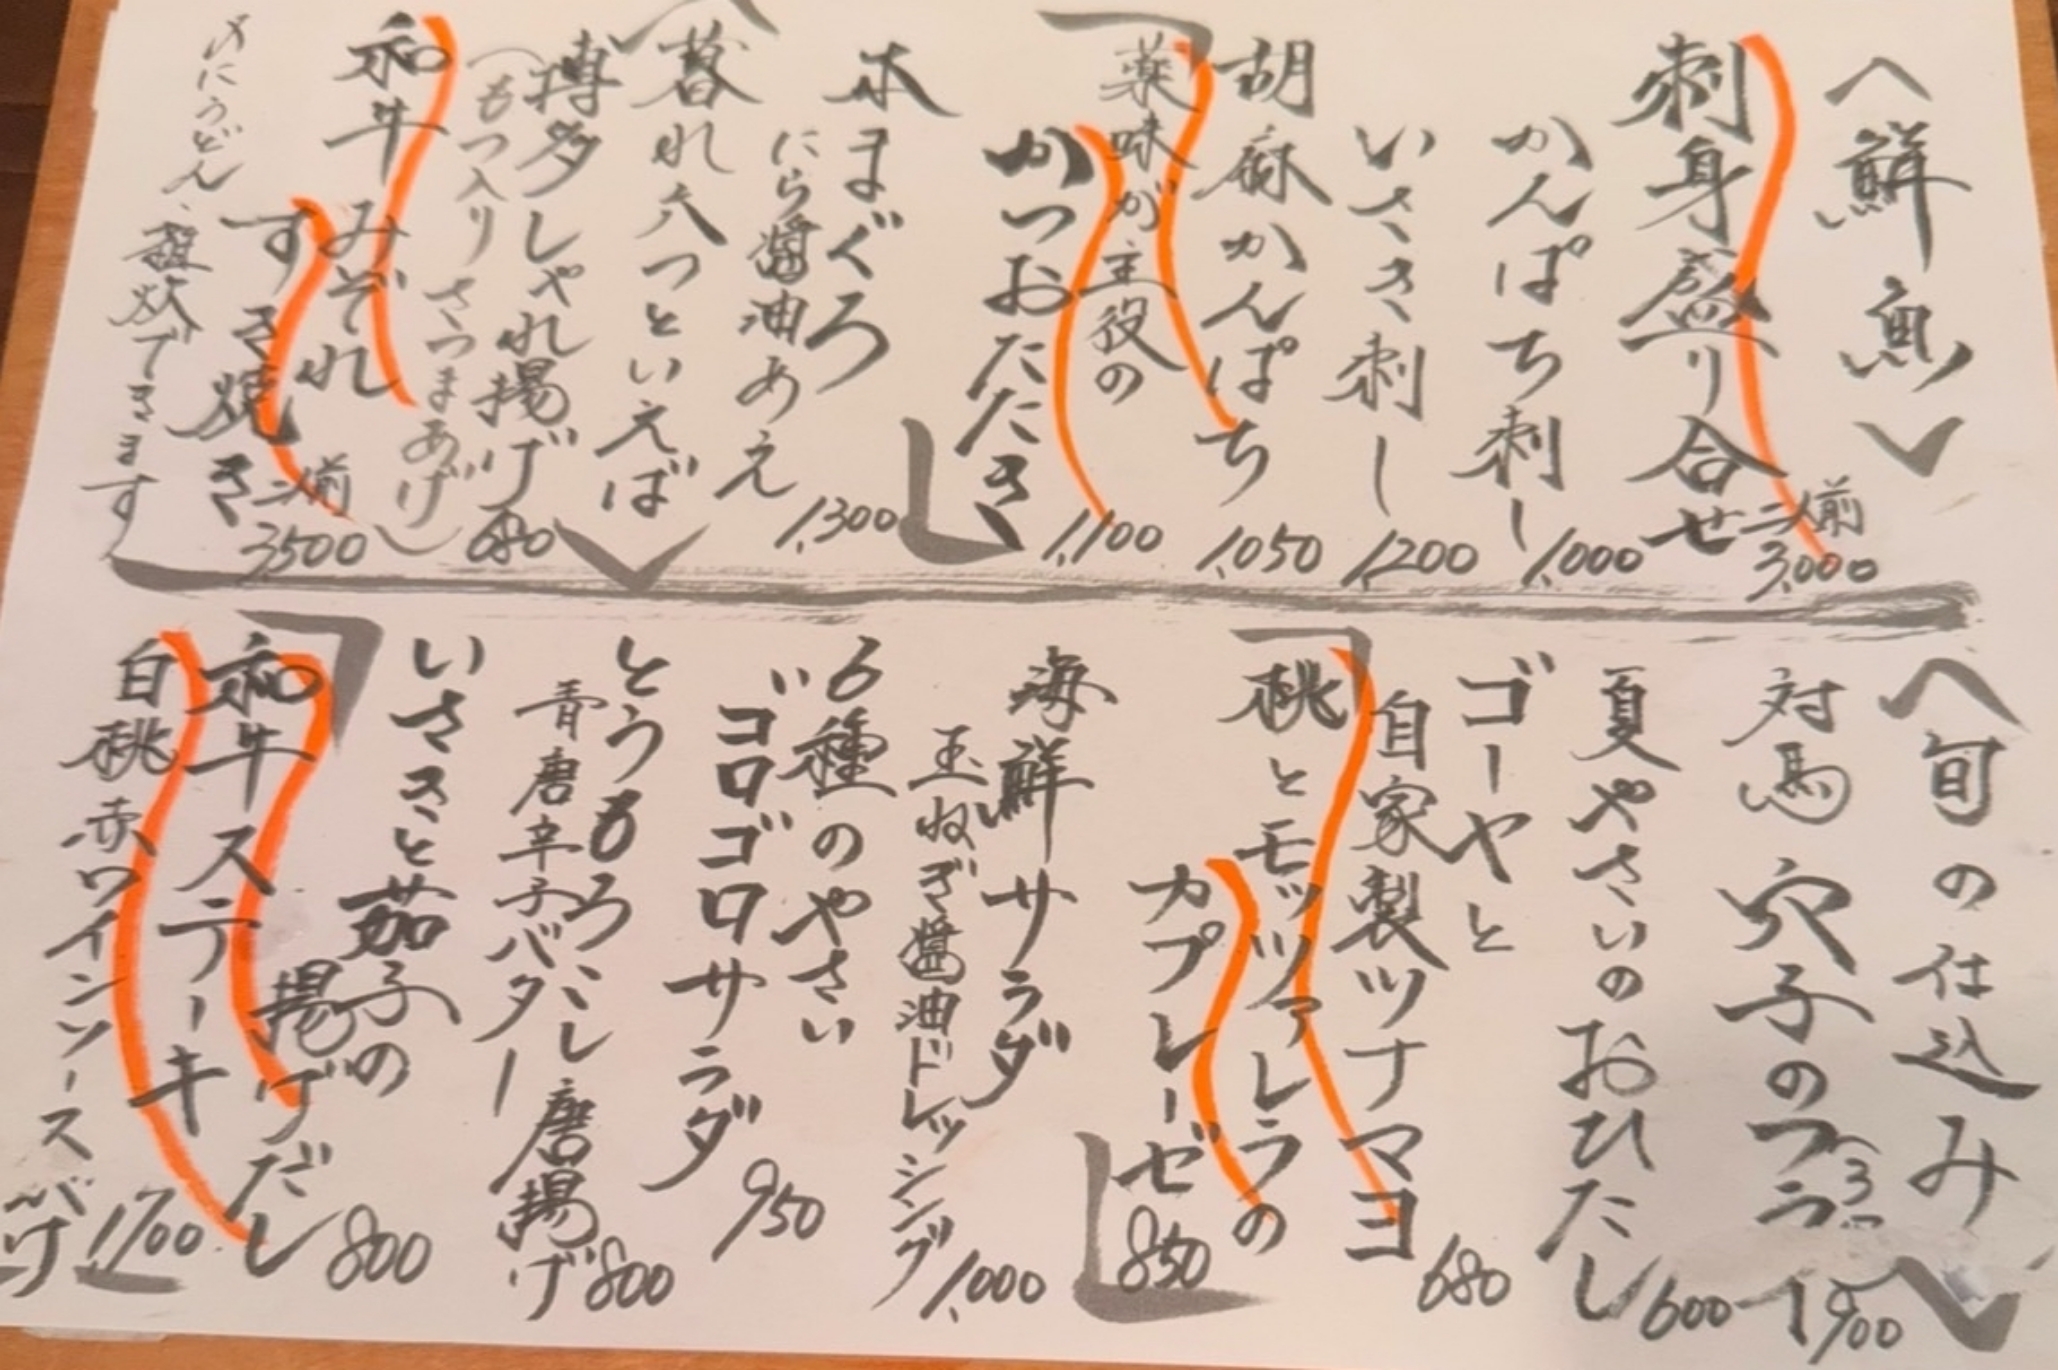 〈鮮魚〉
刺身盛り合せ 二人前 3,000
かんぱち刺し 1,000
いさき刺し 1,200
胡麻かんぱち 1,050
薬味が主役の
かつおたたき 1,100
本まぐろ
にら醤油あえ 1,300
〈暮れ六つといえば〉
博多しゃれ揚げ 680
(もつ入りさつまあげ)
和牛みぞれ
すき焼き 二人前 3500
〆にうどん、雑炊できます
〈旬の仕込み〉
対馬穴子のフライ 1,900
夏やさいのおひたし 600
ゴーヤと
自家製ツナマヨ 680
桃とモッツァレラの
カプレーゼ 850
海鮮サラダ
玉ねぎ醤油ドレッシング 1,000
6種のやさい
ゴロゴロサラダ 950
とうもろこし唐揚げ 800
青唐辛子バター
いさきと茄子の
揚げだし 800
和牛ステーキ 1,700
白桃赤ワインソースがけ